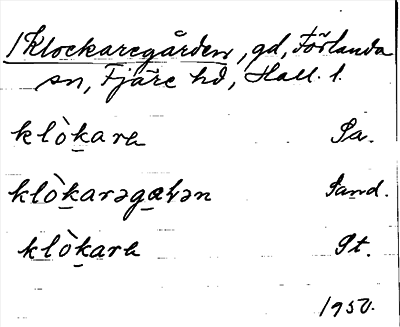 /Klockaregården, gd, Förlanda
sn, Fjäre hd, Hall. l.
klò̱kara Sa.
klò̱karəga̱ɽən Sand.
klò̱kara St.
1950.